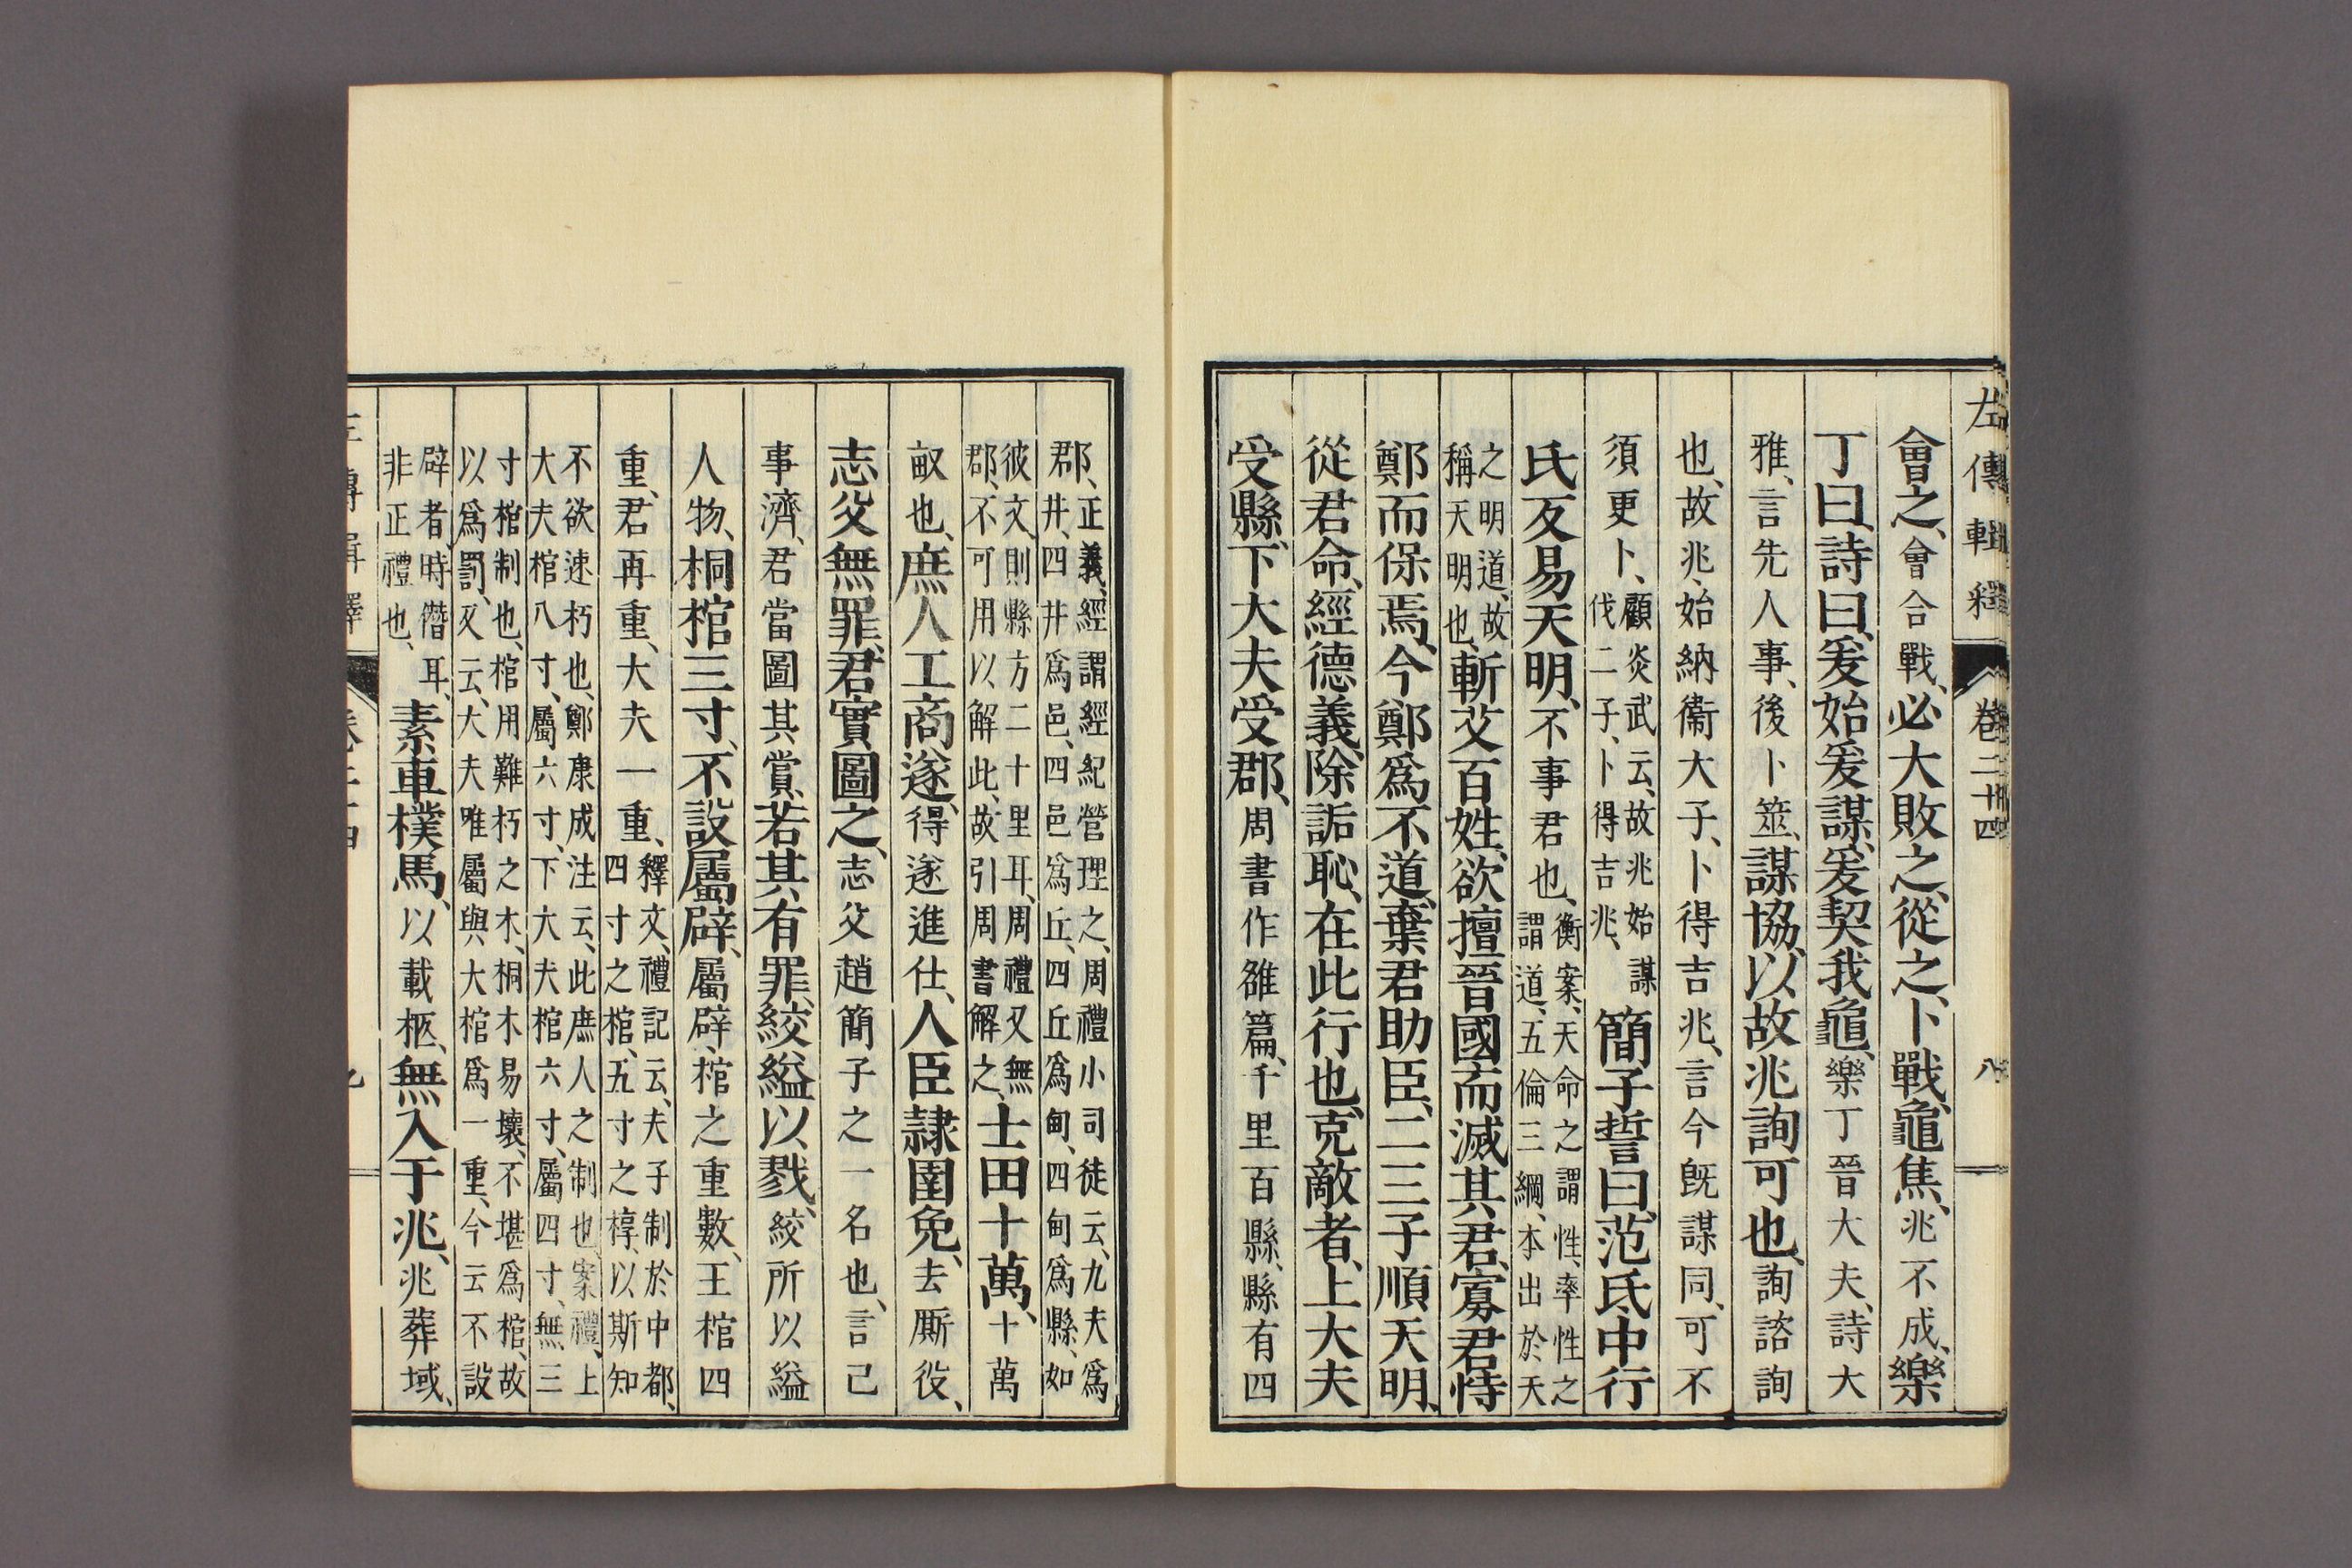 左傳輯釋 卷二十四 八
會之、會合戰、必大敗之、從之、卜戰、龜焦、兆不成、樂
丁曰、詩曰、爰始爰謀、爰契我龜、樂丁晉大夫、詩大
雅、言先人事、後卜筮、謀協、以故兆詢可也、詢諮詢
也、故兆、始納衞大子、卜得吉兆、言今既謀同、可不
須更卜、顧炎武云、故兆始謀
伐二子、卜得吉兆、簡子誓曰、范氏中行
氏反易天明、不事君也、衡案、天命之謂性、率性之
謂道、五倫三綱、本出於天
之明道、故
稱天明也、斬艾百姓、欲擅晉國而滅其君、寡君恃
鄭而保焉、今鄭爲不道、棄君助臣、二三子順天明、
從君命、經德義、除詬恥、在此行也、克敵者、上大夫
受縣、下大夫受郡、周書作雒篇、千里百縣、縣有四
郡、正義、經謂經紀營理之、周禮小司徒云、九夫爲
井、四井爲邑、四邑爲丘、四丘爲甸、四甸爲縣、如
彼文、則縣方二十里耳、周禮又無
郡、不可用以解此、故引周書解之、士田十萬、十萬
畝也、庶人工商遂、得遂進仕、人臣隸圉免、去厮役、
志父無罪、君實圖之、志父趙簡子之一名也、言己
事濟、君當圖其賞、若其有罪、絞縊以戮、絞所以縊
人物、桐棺三寸、不設屬辟、屬辟、棺之重數、王棺四
重、君再重、大夫一重、釋文、禮記云、夫子制於中都、
四寸之棺、五寸之椁、以斯知
不欲速朽也、鄭康成注云、此庶人之制也、案禮、上
大夫棺八寸、屬六寸、下大夫棺六寸、屬四寸、無三
寸棺制也、棺用難朽之木、桐木易壞、不堪爲棺、故
以爲罰、又云、大夫唯屬與大棺爲一重、今云不設
辟者、時僭耳、
非正禮也、素車樸馬、以載柩、無入于兆、兆葬域、